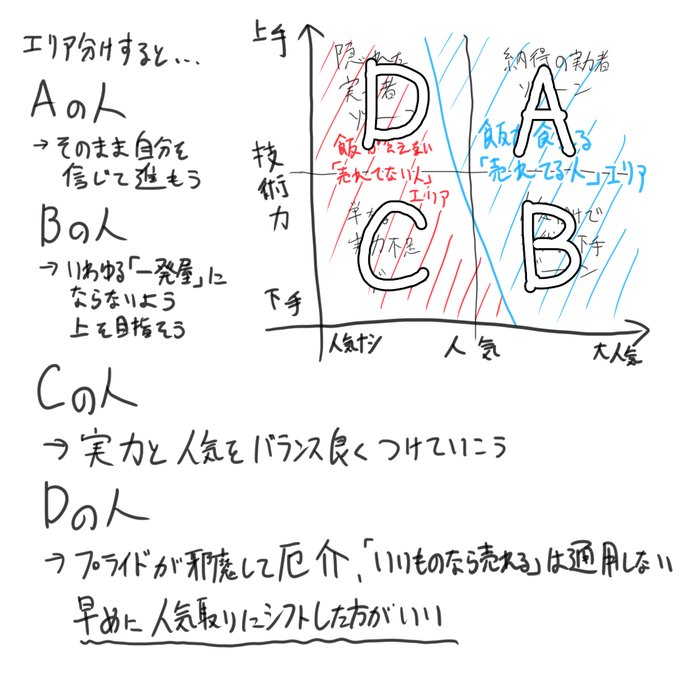 エリア分けすると...
Aの人
→そのまま自分を
信じて進もう
Bの人
→いわゆる「一発屋」に
ならないよう
上を目指そう
上手
技術力
下手
人気ナシ
人気
大人気
隠れた
実力者
ゾーン
D
飯が食えない
「売れてない人」
エリア
納得の実力者
ゾーン
A
飯が食える
「売れてる人」エリア
実力不足
C
下手
ゾーン
B
Cの人
→実力と人気をバランス良くつけていこう
Dの人
→プライドが邪魔して厄介、「いいものなら売れる」は通用しない
早めに人気取りにシフトした方がいい